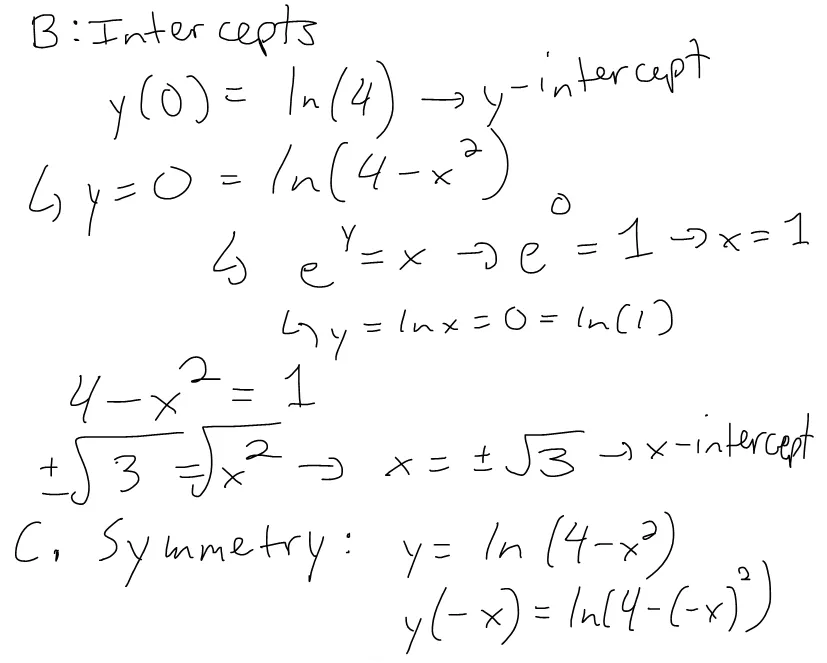 B: Intercepts
y(0) = ln(4) → y-intercept
↳ y = 0 = ln(4-x²)
↳ e^y = x → e^0 = 1 → x = 1
↳ y = ln x = 0 = ln(1)
4-x² = 1
±√3 = √x² → x = ±√3 → x-intercept
C. Symmetry: y = ln(4-x²)
y(-x) = ln(4-(-x)²)